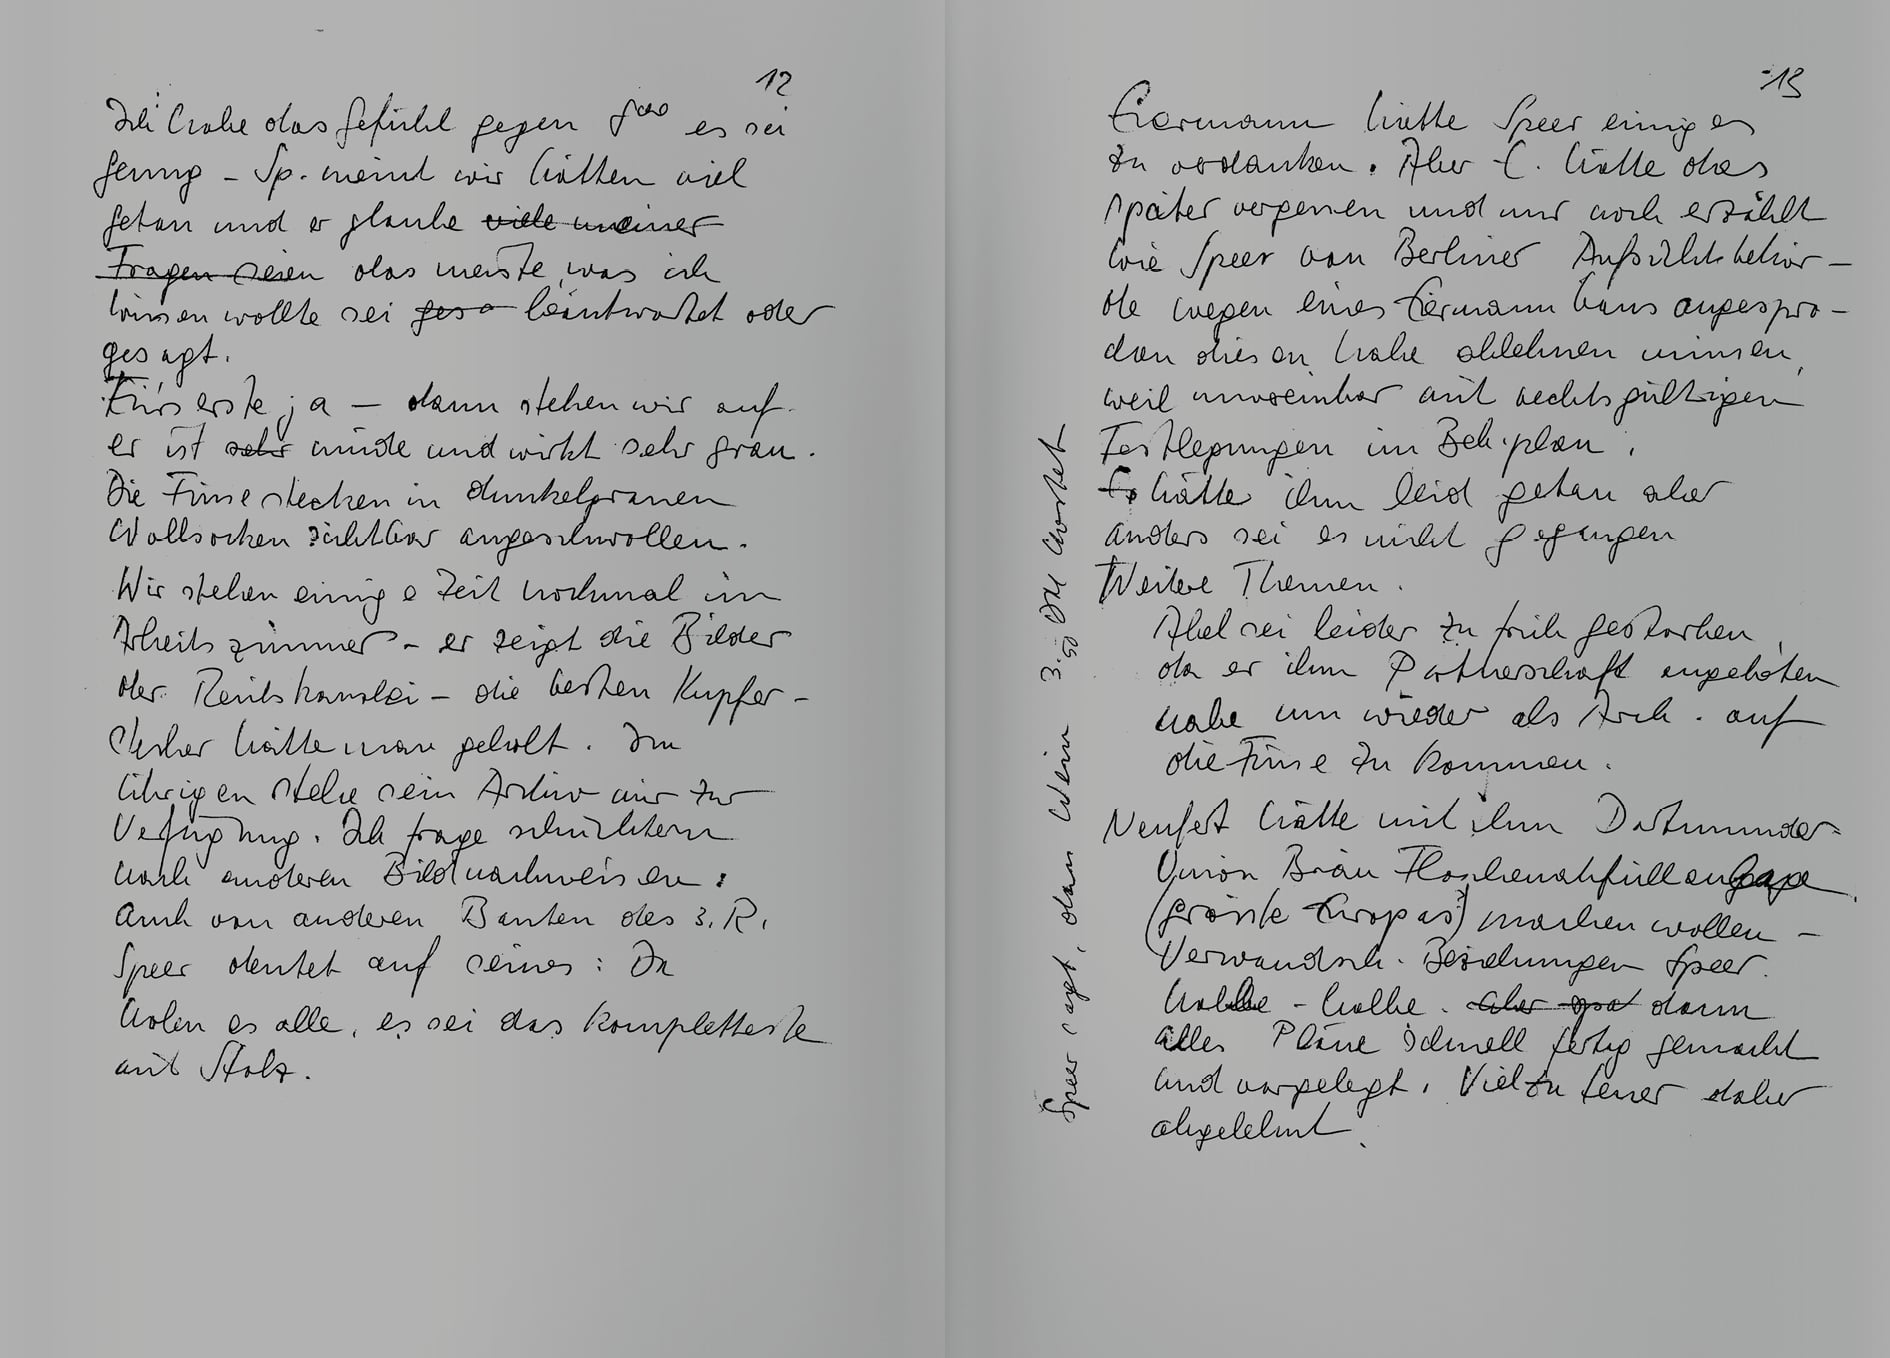 12
Ich habe das Gefühl gegen 5⁰⁰ es sei
genug – Sp. meint wir hätten viel
getan und er glaube viele meiner
Fragen seien das meiste, was ich
wissen wollte sei gesa beantwortet oder
gesagt.
Fürs erste ja – dann stehen wir auf
er ist sehr müde und wirkt sehr grau.
Die Füsse stecken in dunkelgrauen
Wollsocken sichtbar angeschwollen.
Wir stehen einige Zeit nochmal im
Arbeitszimmer – er zeigt die Bilder
der Reichskanzlei – die besten Kupfer-
stecher hätte man geholt. Im
übrigen stehe sein Archiv mir zur
Verfügung. Ich frage schüchtern
nach anderen Bildnachweisen:
Auch von anderen Bauten des 3. R.
Speer deutet auf seines: Da
holen es alle, es sei das kompletteste
mit Stolz.
13
Eiermann hätte Speer einiges
zu verdanken. Aber E. hätte das
später vergessen und nur noch erzählt
wie Speer von Berliner Aufsichtsbehör-
de wegen eines Eiermann baus angespro-
chen diesen habe ablehnen müssen,
weil unvereinbar mit rechtsgültigen
Festlegungen im Beb.plan.
Es hätte ihm leid getan aber
anders sei es nicht gegangen
Weitere Themen.
Abel sei leider zu früh gestorben,
da er ihm Partnerschaft angeboten
habe um wieder als Arch. auf
die Füsse zu kommen.
Neufert hätte mit ihm Dortmunder-
Union Bräu Flaschenabfüllanlage
(grösste Europas) machen wollen –
Verwandsch. Beziehungen Speer.
halbe – halbe. aber dann
alles Pläne schnell fertig gemacht
und vorgelegt. Viel zu teuer daher
abgelehnt.
Speer sagt, dass Wein 3.50 DM kostet